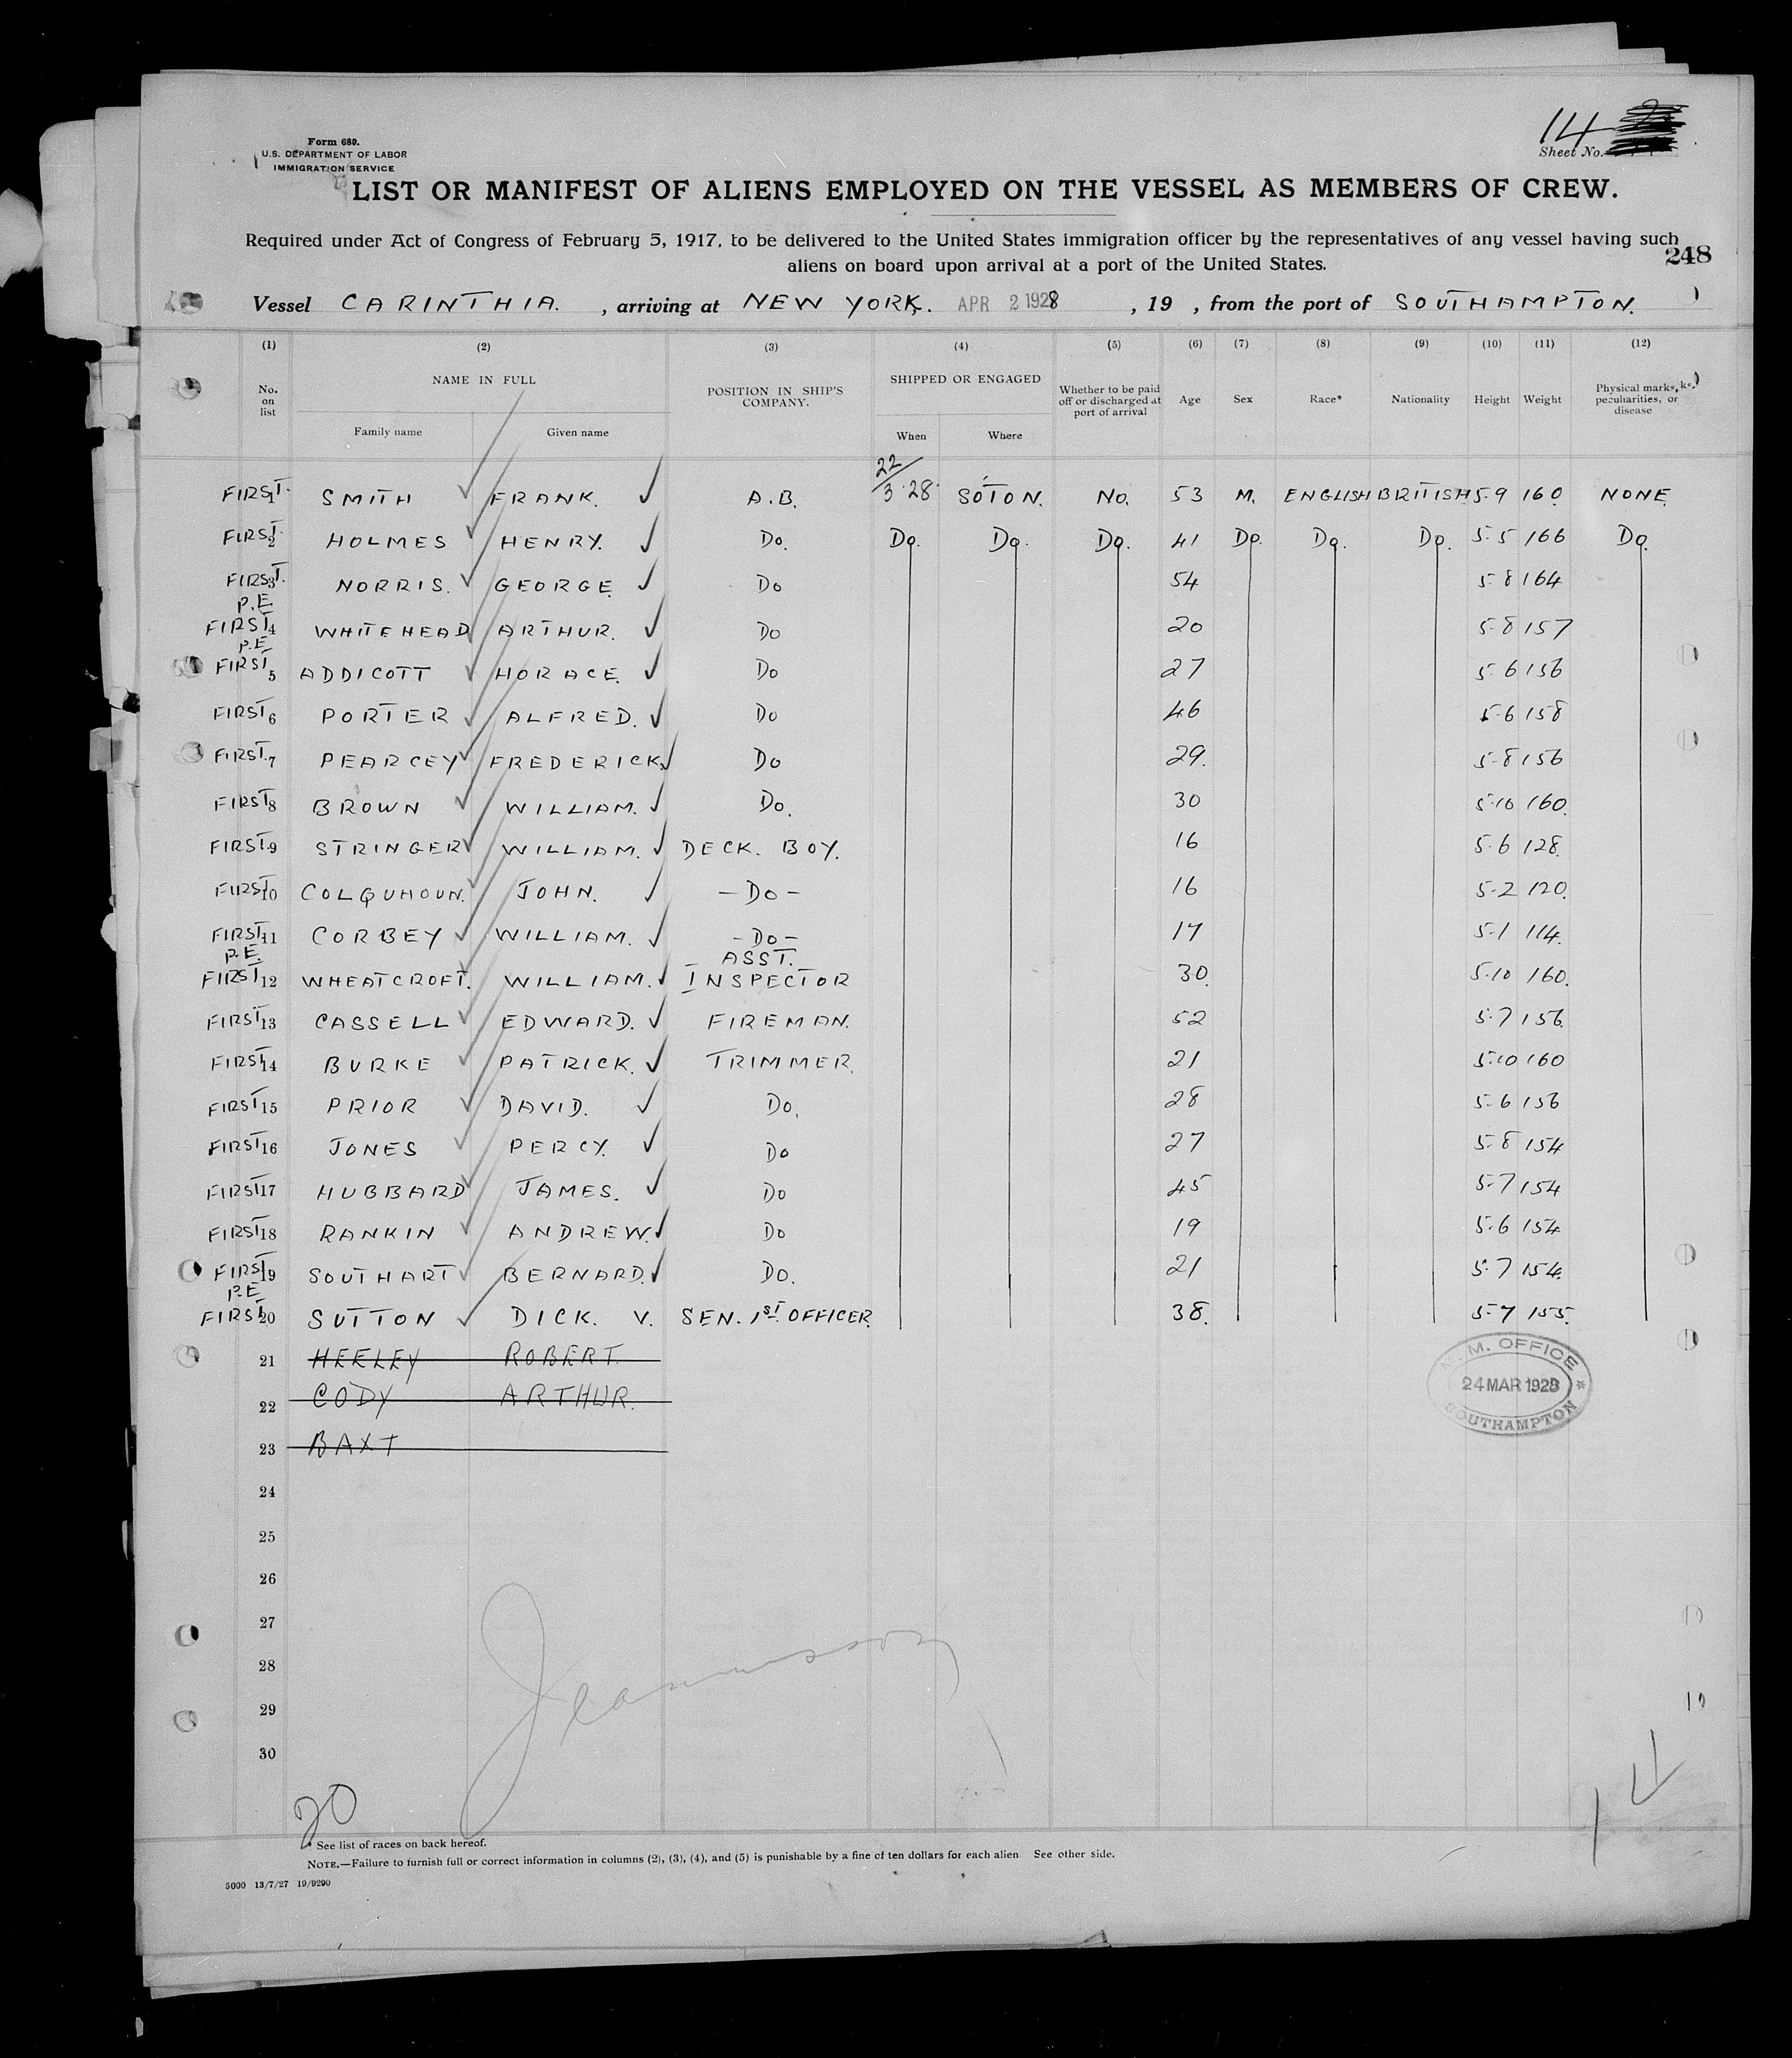 14
Sheet No.
Form 680.
U.S. DEPARTMENT OF LABOR
IMMIGRATION SERVICE
LIST OR MANIFEST OF ALIENS EMPLOYED ON THE VESSEL AS MEMBERS OF CREW.
Required under Act of Congress of February 5, 1917, to be delivered to the United States immigration officer by the representatives of any vessel having such
aliens on board upon arrival at a port of the United States.
248
Vessel CARINTHIA. , arriving at NEW YORK. APR 2 1928 , 19 , from the port of SOUTHAMPTON.
(1) (2) (3) (4) (5) (6) (7) (8) (9) (10) (11) (12)
No. on list NAME IN FULL Family name Given name POSITION IN SHIP'S COMPANY. SHIPPED OR ENGAGED When Where Whether to be paid off or discharged at port of arrival Age Sex Race* Nationality Height Weight Physical marks, peculiarities, or disease
FIRST. 1 SMITH FRANK. A.B. 22/3.28. SOTON. No. 53 M. ENGLISH BRITISH 5.9 160. NONE
FIRST. 2 HOLMES HENRY. Do. Do. Do. Do. 41 Do. Do. Do. 5.5 166 Do.
FIRST. 3 NORRIS. GEORGE. Do 54 5.8 164
P.E.
FIRST 4 WHITEHEAD ARTHUR. Do 20 5.8 157
P.E
FIRST 5 ADDICOTT HORACE. Do 27 5.6 156
FIRST 6 PORTER ALFRED. Do 46 5.6 158
FIRST 7 PEARCEY FREDERICK. Do 29. 5.8 156
FIRST 8 BROWN WILLIAM. Do. 30 5.10 160.
FIRST 9 STRINGER WILLIAM. DECK. BOY. 16 5.6 128.
FIRST 10 COLQUHOUN. JOHN. -Do- 16 5.2 120.
FIRST 11 CORBEY WILLIAM. -Do- 17 5.1 114.
P.E.
FIRST 12 WHEATCROFT. WILLIAM. ASST. INSPECTOR 30. 5.10 160.
FIRST 13 CASSELL EDWARD. FIREMAN. 52 5.7 156.
FIRST 14 BURKE PATRICK. TRIMMER. 21 5.10 160
FIRST 15 PRIOR DAVID. Do. 28 5.6 156
FIRST 16 JONES PERCY. Do 27 5.8 154
FIRST 17 HUBBARD JAMES. Do 45 5.7 154
FIRST 18 RANKIN ANDREW. Do 19 5.6 154
FIRST 19 SOUTHART BERNARD. DO. 21 5.7 154.
P.E
FIRST 20 SUTTON DICK. V. SEN. 1ST OFFICER. 38. 5.7 155.
21 HEELEY ROBERT.
22 CODY ARTHUR.
23 BAXT
M. OFFICE
24 MAR 1928
SOUTHAMPTON
24
25
26
27
28
29
30
20
* See list of races on back hereof.
NOTE.—Failure to furnish full or correct information in columns (2), (3), (4), and (5) is punishable by a fine of ten dollars for each alien. See other side.
5000 13/7/27 19/9290